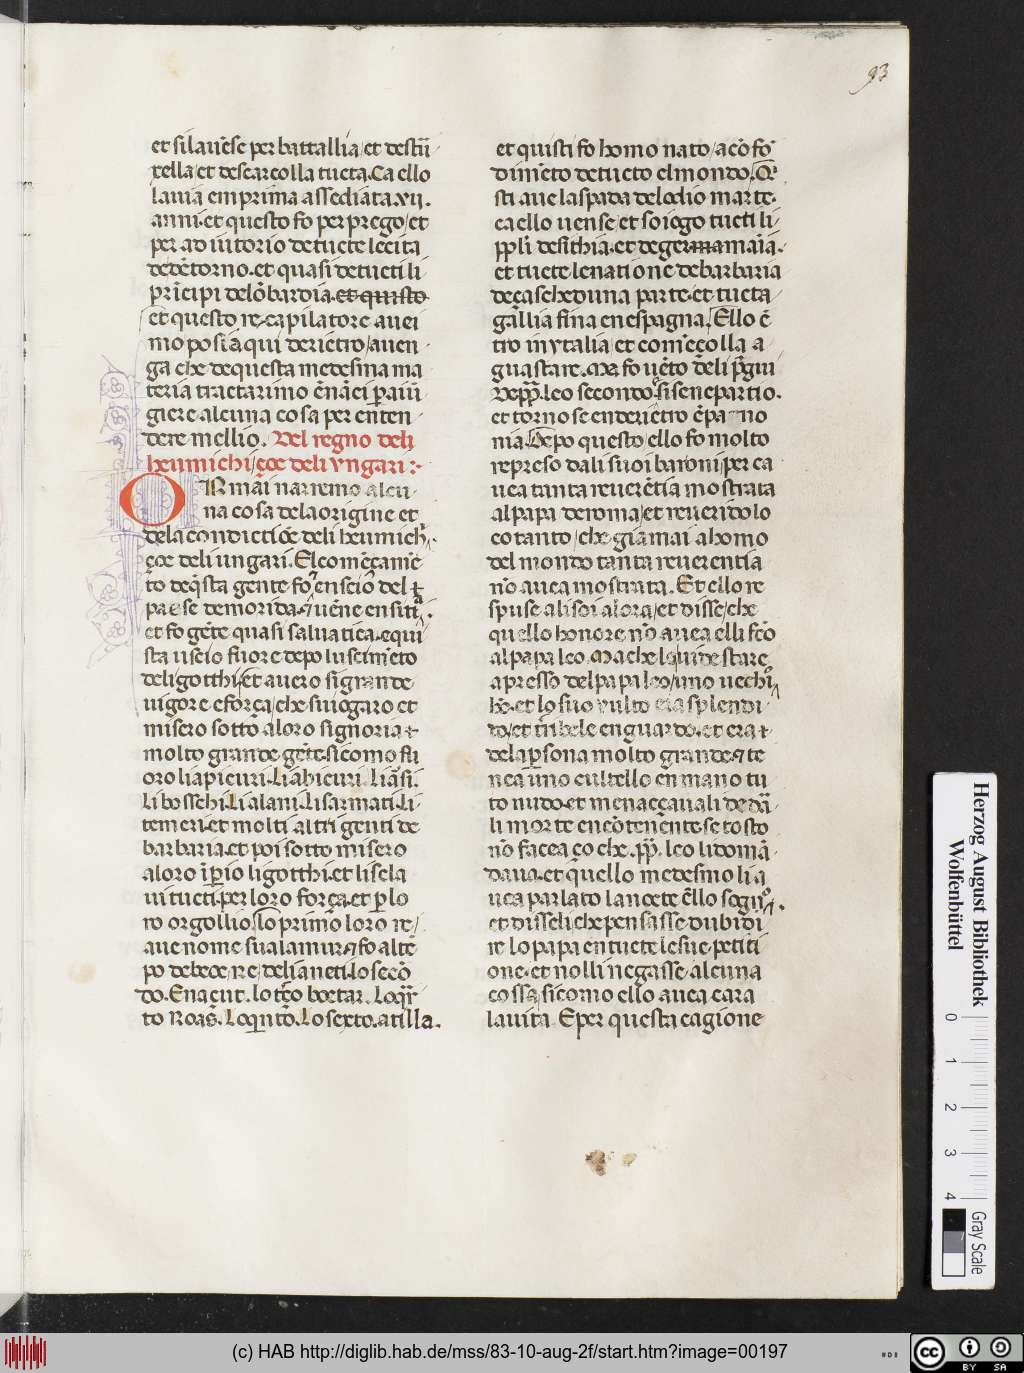 93
et silauēse per battallia/et destū
rella/et descarcolla tucta. Ca ello
lauia emprima assediata. xii.
anni. et questo fo per prego/et
per adiutorio de tucte le cita
dedētorno. et quasi de tucti li
prīcipi de lōbardia. et quisto
et questo recapilatore auei
mo posi a qui derietro/auen
ga che de questa medesina ma
teria tractarimo ēnāci p aiū
giere alcuna cosa per enten
dere mellio. Del regno deli
heumichi/çoe deli vngari:
OR mai narremo alcu
na cosa dela origine et
dela condictiōe deli heumich
çoe deli ungari. El comēçamē
to deq̄sta gente fo
paese demorida. uēne en siti
et fo gēte quasi saluatica. e qui
sta uscio fuore depo lu scimēto
deli gotthi/et auero si grande
uigore e força/che suiogaro et
misero sotto a loro signoria
molto grande gēte. si como fu
oro li apicuri. li abicuri. li asi.
Li bosschi. Li alani. Li sarmati. Li
temeri. et molti altri genti de
barbaria. et poi sotto misero
a loro īperio li gotthi. et li scla
ui tucti. per loro força. et p lo
ro orgollio. Lo primo loro re/
aue nome sualamur. fo alte
po de dece. re. deli aneti. lo secō
do. Enacut. lo tço boetar. Lo q̄r
to Roas. Lo q̄nto. Lo sexto. atilla.
et quisti fo homo nato/a cō fo
dimēto de tucto el mondo. Q
sti aue la spada delo dio marte.
ca ello uense/et soiogo tucti li
ppli de sithia. et de germamaīa.
et tucte le natione de barbaria
de çascheduna parte. et tucta
gallia fina en espagna. Ello ē
tro in ytalia/et comēço lla a
guastare. Ma fo uēto deli p̄gui
de pp̄. leo secondo. si se ne partio.
et torno se enderietro ē panno
nia. Depo questo/ello fo molto
represo dali suoi baroni/per ca
uea tanta reuerētia mostrata
al papa de roma/et reuerido lo
co tanto/che gia mai ahomo
del mondo tanta reuerentia
nō auea mostrata. Et ello re
spuse ali soi alora/et disse/che
quello honore nō auea elli fcō
al papa leo. Ma che lo uide stare
apresso del papa leo/uno uechi
ho. et lo suo uulto era splendi
do/et tribele en guardo. et era
dela p̄sona molto grande. te
nea uno cultello en mano tu
to nudo. et menaccaua li de da
li morte encōtenente. se tosto
nō facea ço che. pp̄. leo li doma
daua. et quello medesimo li a
uea parlato la nocte ello sogno.
et disseli che pensasse dubidi
re lo papa en tucte le sue petiti
one. et no lli negasse alcuna
cossa/si como ello auea cara
la uita. E per questa cagione
Herzog August Bibliothek
Wolfenbüttel
0 1 2 3 4
Gray Scale
(c) HAB http://diglib.hab.de/mss/83-10-aug-2f/start.htm?image=00197
cc BY SA